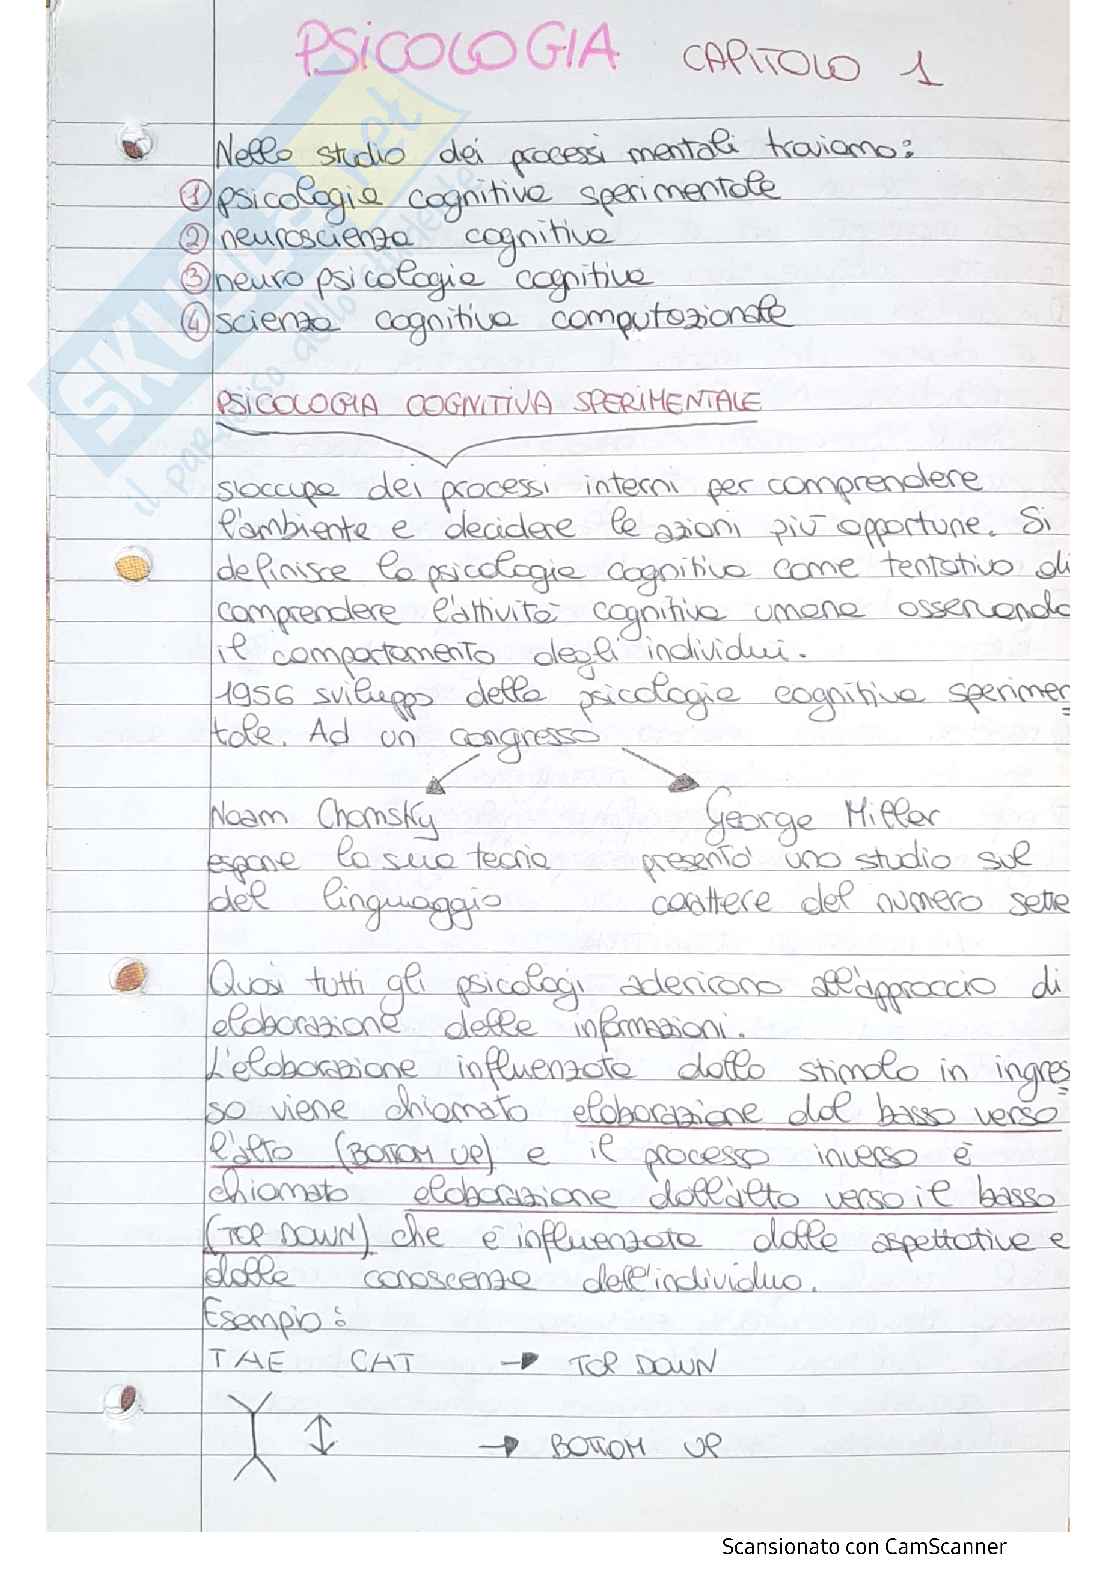 PSICOLOGIA CAPITOLO 1
Nello studio dei processi mentali troviamo:
① psicologia cognitiva sperimentale
② neuroscienza cognitiva
③ neuropsicologia cognitiva
④ scienza cognitiva computazionale
PSICOLOGIA COGNITIVA SPERIMENTALE
s'occupa dei processi interni per comprendere
l'ambiente e decidere le azioni più opportune. Si
definisce la psicologia cognitiva come tentativo di
comprendere l'attività cognitiva umana osservando
il comportamento degli individui.
1956 sviluppo della psicologia cognitiva sperimen=
tale. Ad un congresso
Noam Chomsky George Miller
espone la sua teoria presentò uno studio sul
del linguaggio carattere del numero sette
Quasi tutti gli psicologi aderirono all'approccio di
elaborazione delle informazioni.
L'elaborazione influenzata dallo stimolo in ingres=
so viene chiamato elaborazione dal basso verso
l'alto (BOTTOM UP) e il processo inverso è
chiamato elaborazione dall'alto verso il basso
(TOP DOWN) che è influenzata dalle aspettative e
dalle conoscenze dell'individuo.
Esempio:
TAE CAT → TOP DOWN
→ BOTTOM UP
SKUOLA.net
il paradiso dello studente
Scansionato con CamScanner